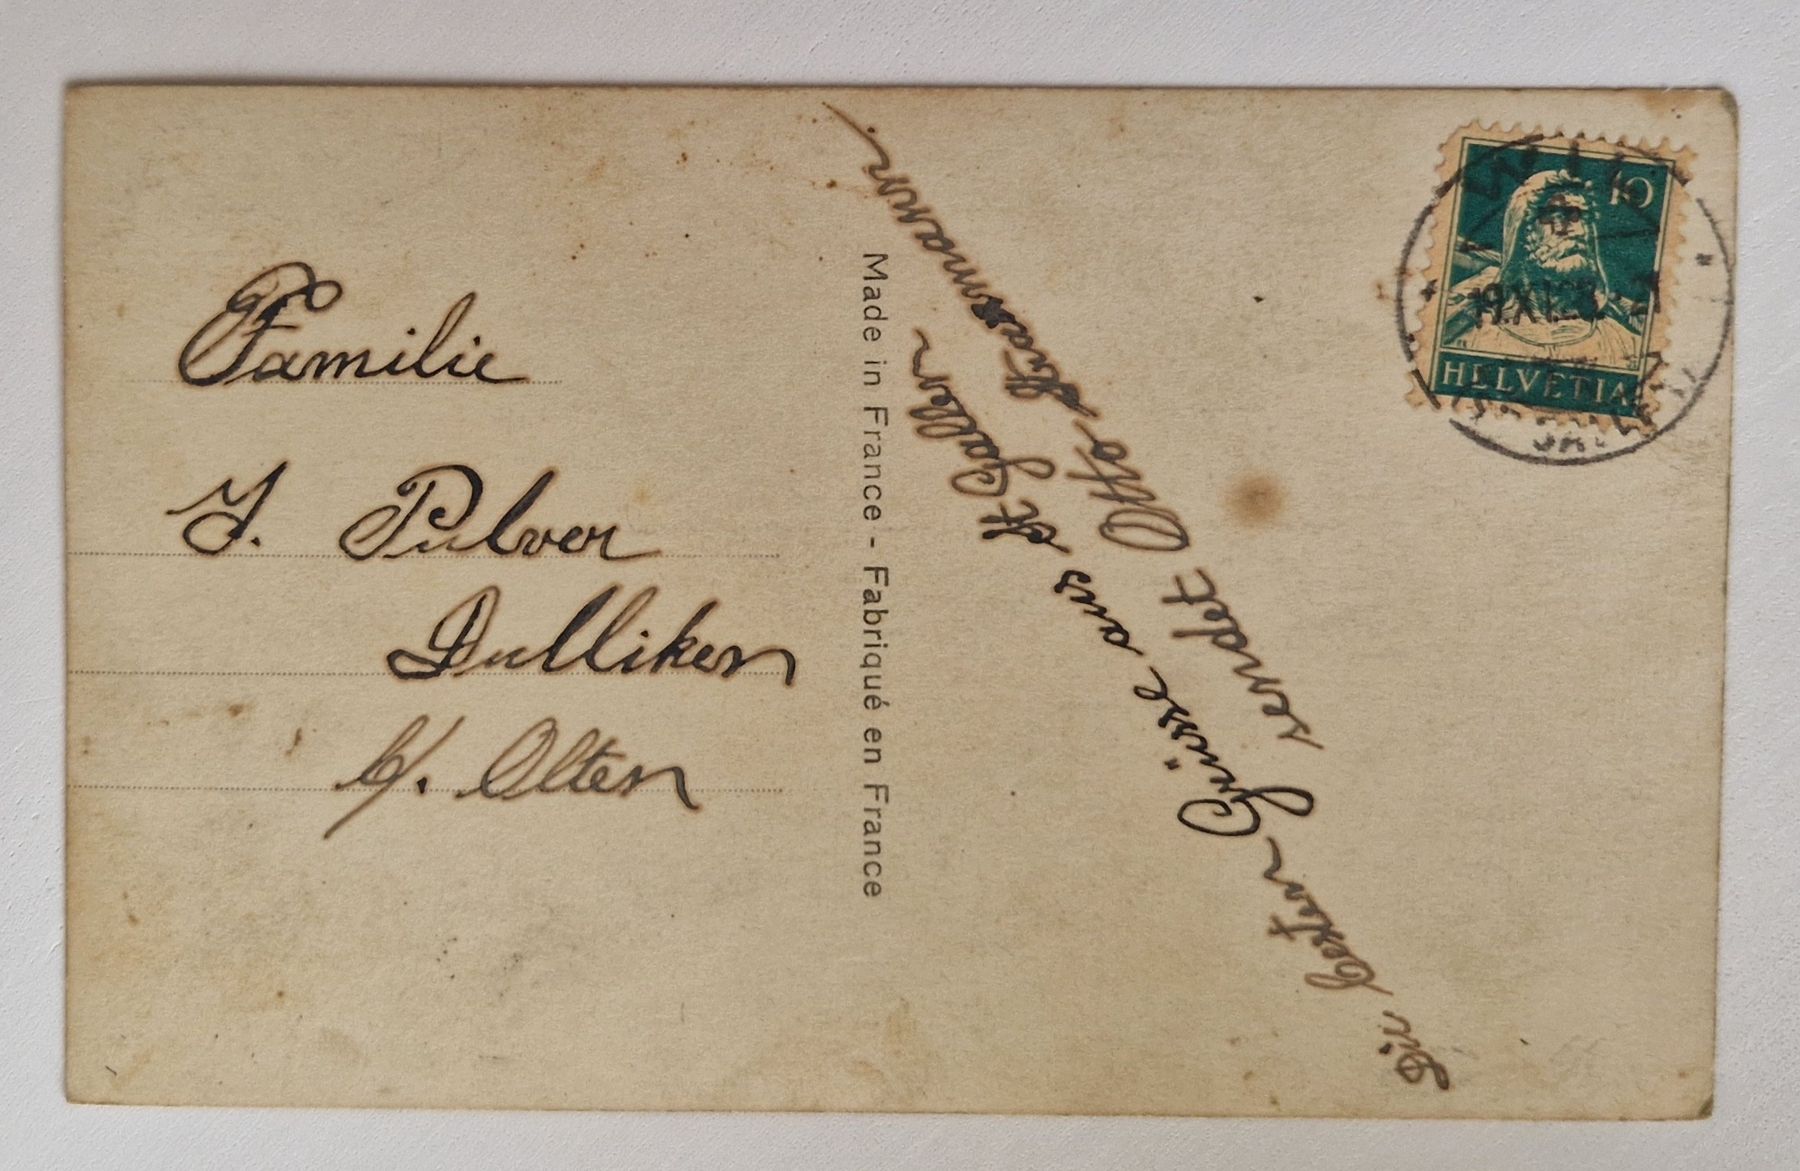 Familie
J. Pulver
Dulliken
b/. Olten
Made in France - Fabriqué en France
Die besten Grüsse aus St Gallen
sendet Otto
10
HELVETIA
19.XI.